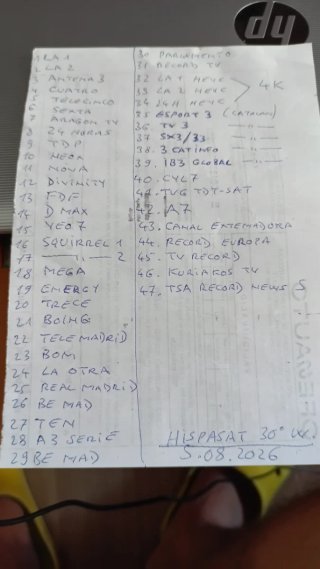 1 LA 1
2 LA 2
3 ANTENA 3
4 CUATRO
5 TELECINCO
6 SEXTA
7 ARAGON TV
8 24 HORAS
9 TDP
10 NEOX
11 NOVA
12 DIVINITY
13 FDF
14 D MAX
15 VEO 7
16 SQUIRREL 1
17 —— 11 —— 2
18 MEGA
19 ENERGY
20 TRECE
21 BOING
22 TELEMADRID
23 BOM
24 LA OTRA
25 REAL MADRID
26 BE MAD
27 TEN
28 A3 SERIE
29 BE MAD
30 PARLAMENTO
31 RECORD TV
32 LA 1 HEVC
33 LA 2 HEVC > 4K
34 24H HEVC
35 ESPORT 3 (CATALAN)
36. TV 3 —— 11 ——
37 SX3/33 —— 11 ——
38. 3 CATINFO —— 11 ——
39. IB3 GLOBAL —— 11 ——
40. CYL7
41. TVG TDT-SAT
42. A7
43. CANAL EXTEMADORA
44. RECORD EUROPA
45. TV RECORD
46. KURIAKOS TV
47. TSA RECORD NEWS
HISPASAT 30° W.
5.08.2026